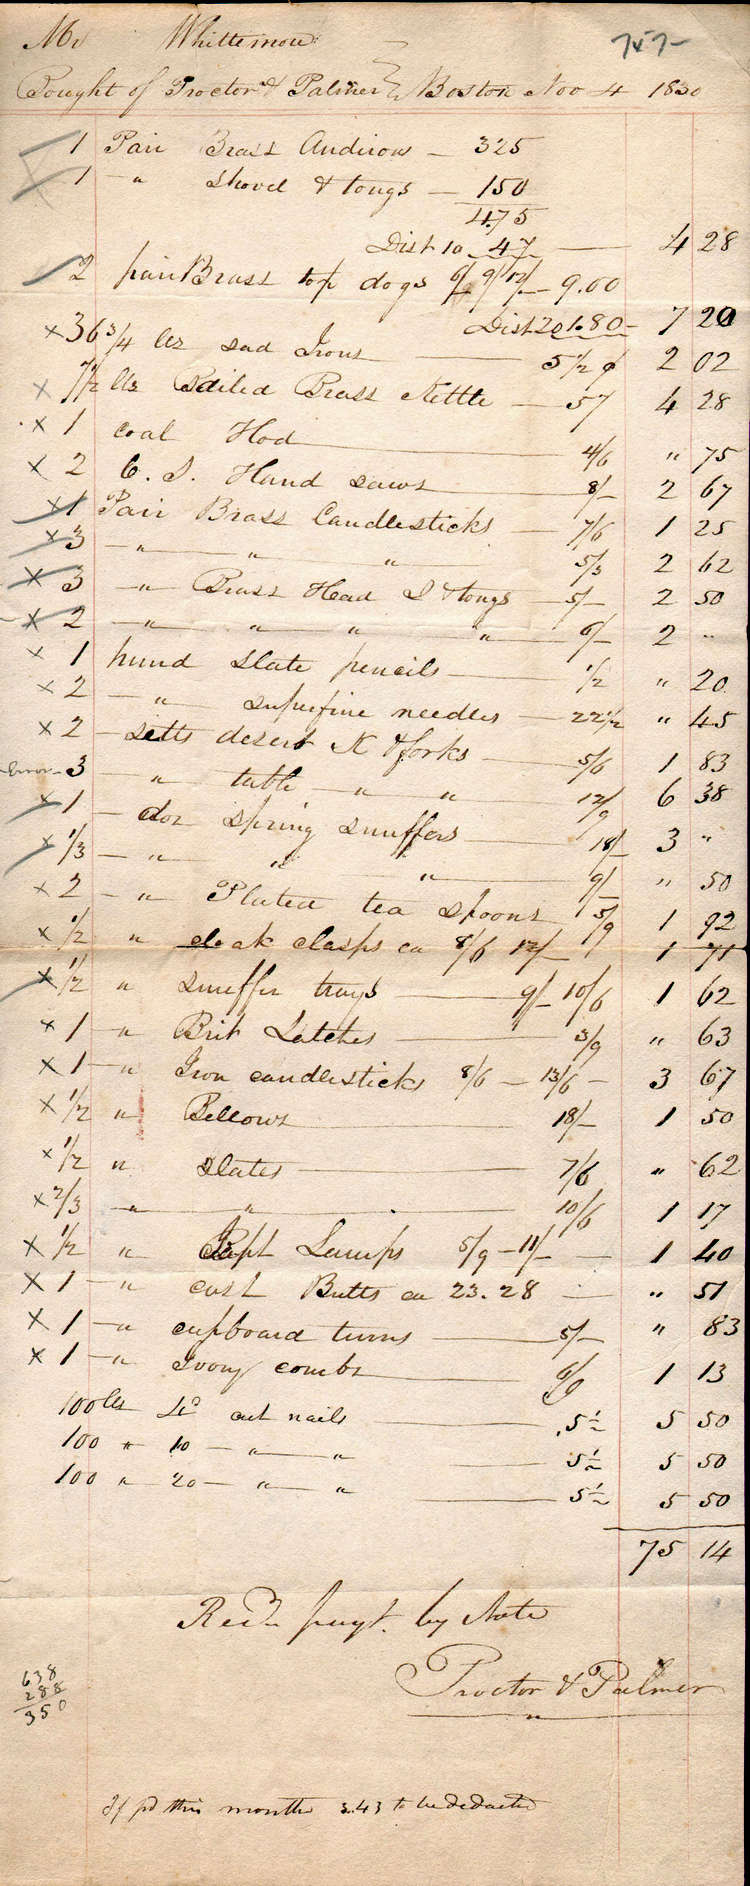 Mr Whittemore 757-
Bought of Proctor & Palmer Boston Nov 4 1830
1 Pair Brass Andirons — 325
1 -"- shovel & tongs — 150
475
Dist 10 47 — 4 28
2 pair Brass top dogs 6/ 9/ 12/- 9.00
Dist 20 1.80 - 7 20
x 36 3/4 lbs sad Irons — 5 1/2 ¢ 2 02
x 7 1/2 lbs Brass Kettle — 57 4 28
x 1 coal Hod — 4/6 " 75
x 2 C. S. Hand saws — 8/- 2 67
x 1 Pair Brass Candlesticks — 7/6 1 25
x 3 -"- " " — 5/3 2 62
x 3 -"- Brass Head S & tongs — 5/- 2 50
x 2 -"- " " " — 6/- 2 "
x 1 hund slate pencils — 1/2 " 20
x 2 -"- superfine needles — 22 1/2 " 45
x 2 - setts desert K & forks — 5/6 1 83
Error - 3 " table " " 12/9 6 38
x 1 - doz spring snuffers — 18/- 3 "
x 1/3 -"- " " — 9/- " 50
x 2 -"- Plated tea spoons 5/9 1 92
x 1/2 " cloak clasps ea 8/6 12/- 1 71
x 1/2 " snuffer trays — 9/- 10/6 1 62
x 1 -"- Brit Latches — 3/9 " 63
x 1 -"- Iron candlesticks 8/6 - 13/6 - 3 67
x 1/2 " Bellows — 18/- 1 50
x 1/2 " slates — 7/6 " 62
x 2/3 -"- " — 10/6 1 17
x 1/2 " Lamps 5/9 - 11/- — 1 40
x 1 -"- cast Butts ea 23.28 — " 51
x 1 -"- cupboard turns — 5/- " 83
x 1 -"- Ivory combs — 6/9 1 13
100 lbs 4d cut nails — 5 1/2 5 50
100 " 10 -"- " — 5 1/2 5 50
100 " 20 -"- " — 5 1/2 5 50
75 14
Recd payt. by Note
Proctor & Palmer
638
288
350
If pd this month 3.43 to be deducted